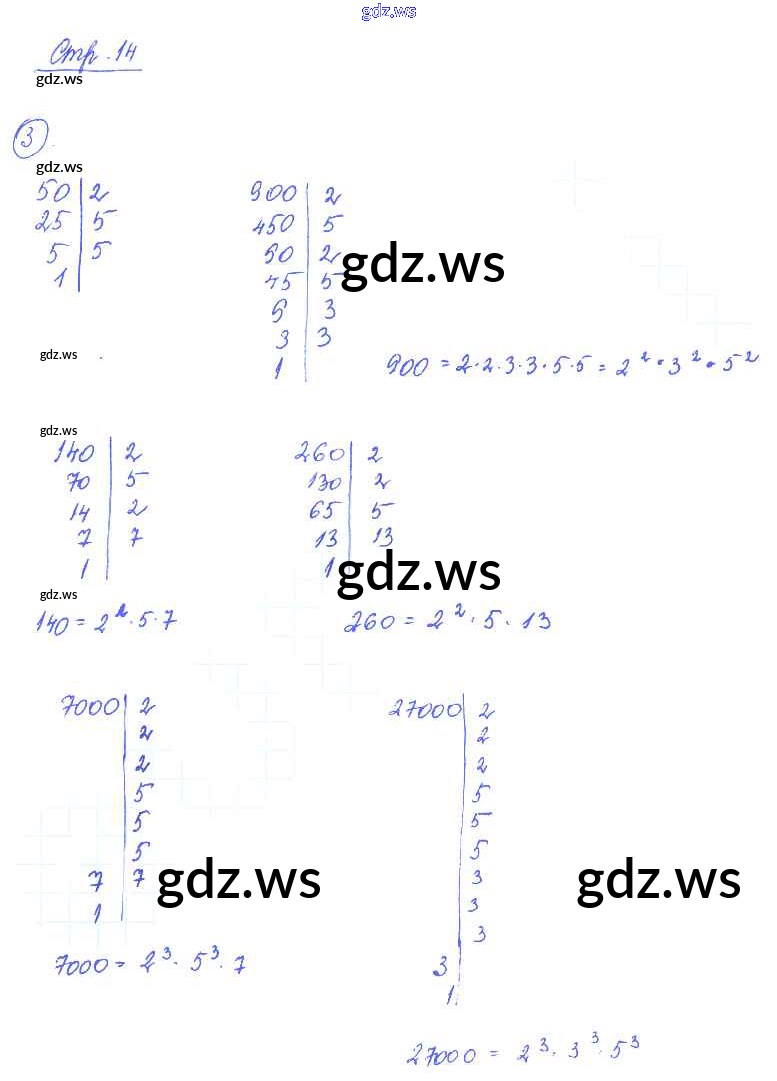 gdz.ws
Стр. 14
gdz.ws
3
gdz.ws
50 | 2
25 | 5
5 | 5
1
900 | 2
450 | 5
90 | 2
45 | 5
9 | 3
3 | 3
1
gdz.ws
gdz.ws
900 = 2·2·3·3·5·5 = 2²·3²·5²
gdz.ws
140 | 2
70 | 5
14 | 2
7 | 7
1
260 | 2
130 | 2
65 | 5
13 | 13
1
gdz.ws
gdz.ws
140 = 2²·5·7
260 = 2²·5·13
7000 | 2
2
2
5
5
5
7 | 7
1
gdz.ws
7000 = 2³·5³·7
27000 | 2
2
2
5
5
5
3
3
3
3
1
gdz.ws
27000 = 2³·3³·5³